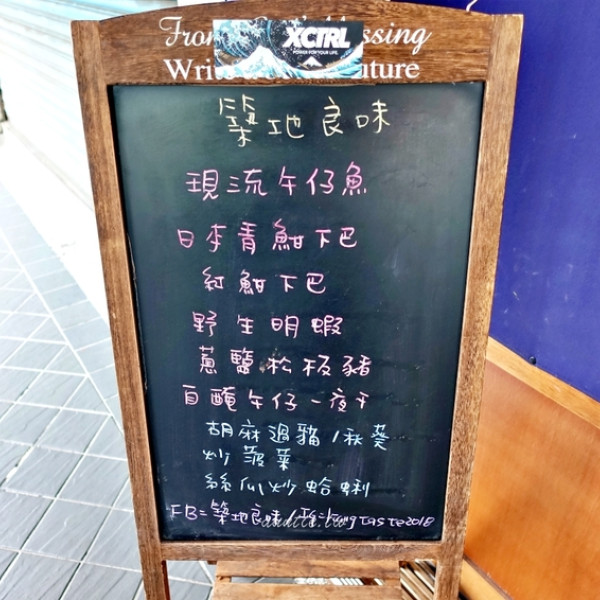 From
ssing
XCTRL
POWER FOR YOUR LIFE.
Writ
uture
築地良味
現流午仔魚
日本青魽下巴
紅魽下巴
野生明蝦
蔥鹽松板豬
自醃午仔一夜干
胡麻過貓/秋葵
炒菠菜
絲瓜炒蛤蜊
FB=築地良味/
taste2018